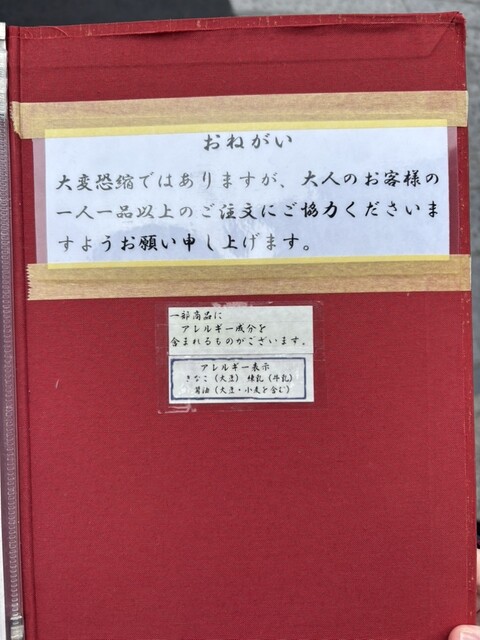 おねがい
大変恐縮ではありますが、大人のお客様の
一人一品以上のご注文にご協力くださいま
すようお願い申し上げます。
一部商品に
アレルギー成分を
含まれるものがございます。
アレルギー表示
きなこ（大豆） 練乳（牛乳）
醤油（大豆・小麦を含む）